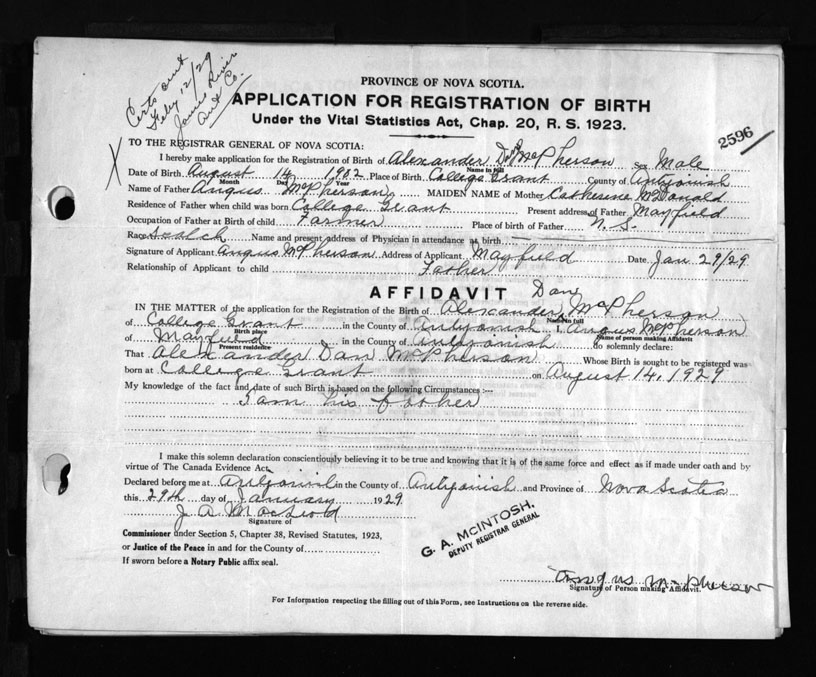 Certs sent
Feby 12/29
James River
Ant Co.
PROVINCE OF NOVA SCOTIA.
APPLICATION FOR REGISTRATION OF BIRTH
Under the Vital Statistics Act, Chap. 20, R. S. 1923.
2596
TO THE REGISTRAR GENERAL OF NOVA SCOTIA:
I hereby make application for the Registration of Birth of Alexander Dan McPherson Sex Male
Name in full
Date of Birth August 14 1902 Place of Birth College Grant County of Antigonish
Month Day Year
Name of Father Angus McPherson MAIDEN NAME of Mother Catherine McDonald
Residence of Father when child was born College Grant Present address of Father Mayfield
Occupation of Father at Birth of child Farmer Place of birth of Father N. S.
Race Scotch Name and present address of Physician in attendance at birth
Signature of Applicant Angus McPherson Address of Applicant Mayfield Date Jan 29/29
Relationship of Applicant to child Father
AFFIDAVIT
Dan
IN THE MATTER of the application for the Registration of the Birth of Alexander McPherson
Name in full
of College Grant in the County of Antigonish I, Angus McPherson
Birth place Name of person making Affidavit
of Mayfield in the County of Antigonish do solemnly declare:
Present residence
That Alexander Dan McPherson Whose Birth is sought to be registered was
born at College Grant on August 14, 1929
My knowledge of the fact and date of such Birth is based on the following Circumstances :—
I am his father
I make this solemn declaration conscientiously believing it to be true and knowing that it is of the same force and effect as if made under oath and by
virtue of The Canada Evidence Act.
Declared before me at Antigonish in the County of Antigonish and Province of Nova Scotia
this 29th day of January 1929
J. A. MacLeod
Signature of
Commissioner under Section 5, Chapter 38, Revised Statutes, 1923,
or Justice of the Peace in and for the County of
If sworn before a Notary Public affix seal.
G. A. MCINTOSH,
DEPUTY REGISTRAR GENERAL
Angus McPherson
Signature of Person making Affidavit.
For Information respecting the filling out of this Form, see Instructions on the reverse side.